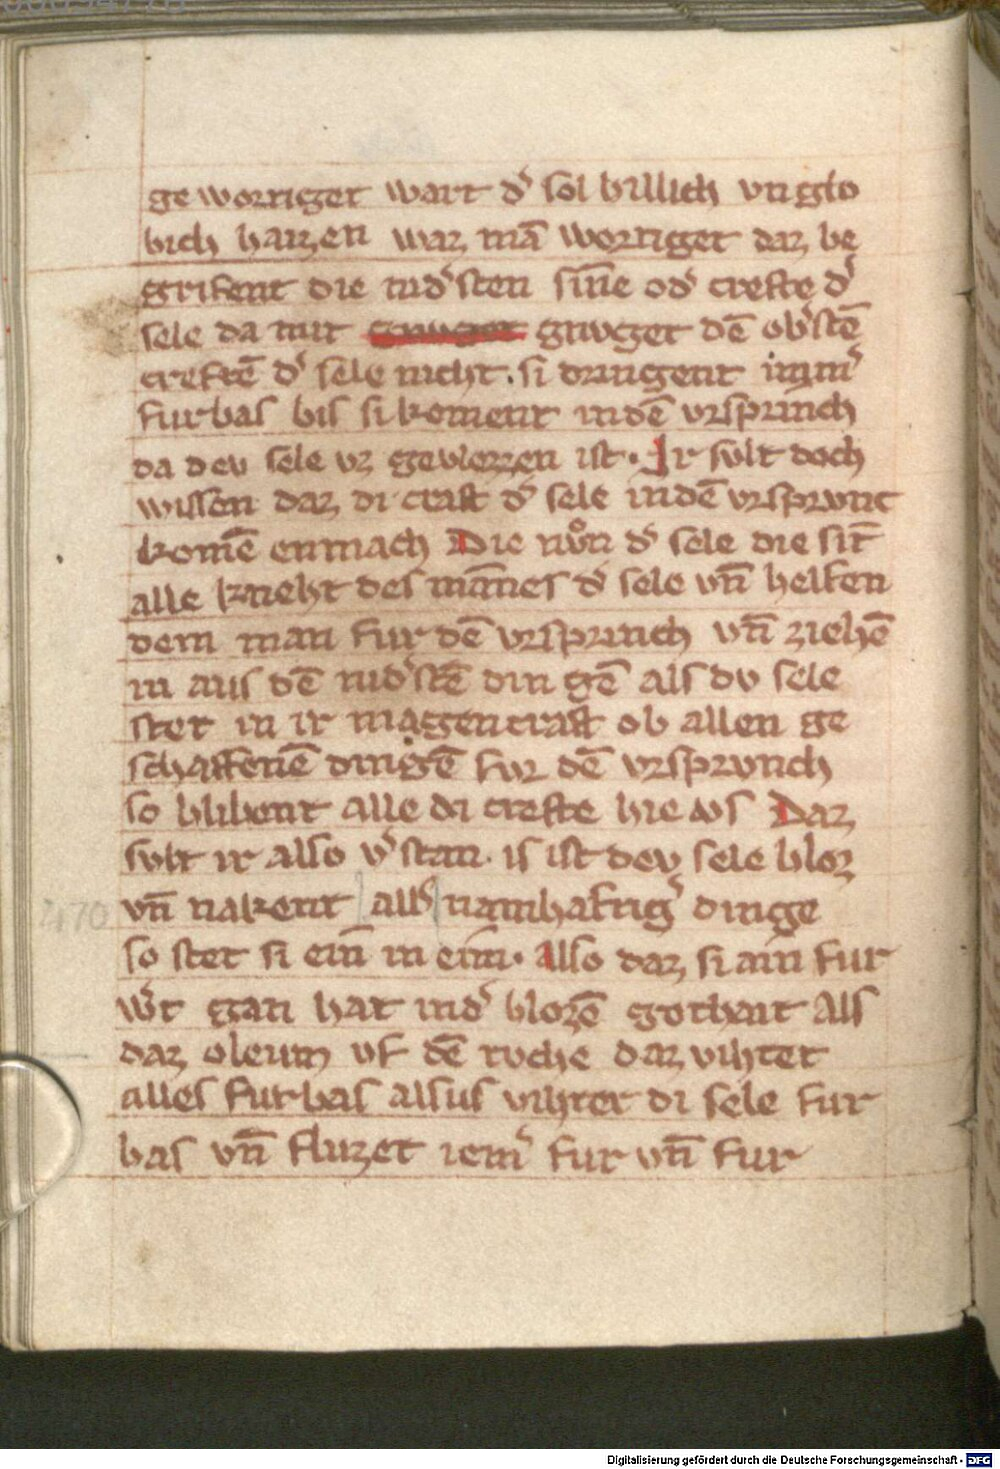 ge wortiget wart dˀ sol billich vngło
bich haizen waz mā wortiget daz be
grifent die nidˀsten sīne odˀ crefte dˀ
sele da mit gnvget dē obˀstē
creftē dˀ sele nicht. si dringent immˀ
furbas bis si koment in dē vrsprinch
da dev sele vz gevlozzen ist. Ir svlt doch
wissen daz di craft dˀ sele in dē vrsprvnc
komē enmach Die nvͦn dˀ sele die sīt
alle kneht des mānes dˀ sele vn̄ helfen
dem man fur dē vrsprinch vn̄ ziehē
in aus dē nidˀstē din gē als dv sele
stet in ir magencraft ob allen ge
schaffenē dingē fur dē vrsprvnch
so blibent alle di crefte hie avs Daz
svlt ir also vˀstan. is ist dev sele bloz
vn̄ nakent allˀ namhaftigˀ dinge
470
so stet si ein̄ in eim̄. Also daz si ain fur
wˀt gan hat in dˀ blozē gothait Als
daz oleum vf dē tvche daz vihtet
alles furbas alsus vihtet di sele fur
bas vn̄ fluzet iemˀ fur vn̄ fur
Digitalisierung gefördert durch die Deutsche Forschungsgemeinschaft - DFG